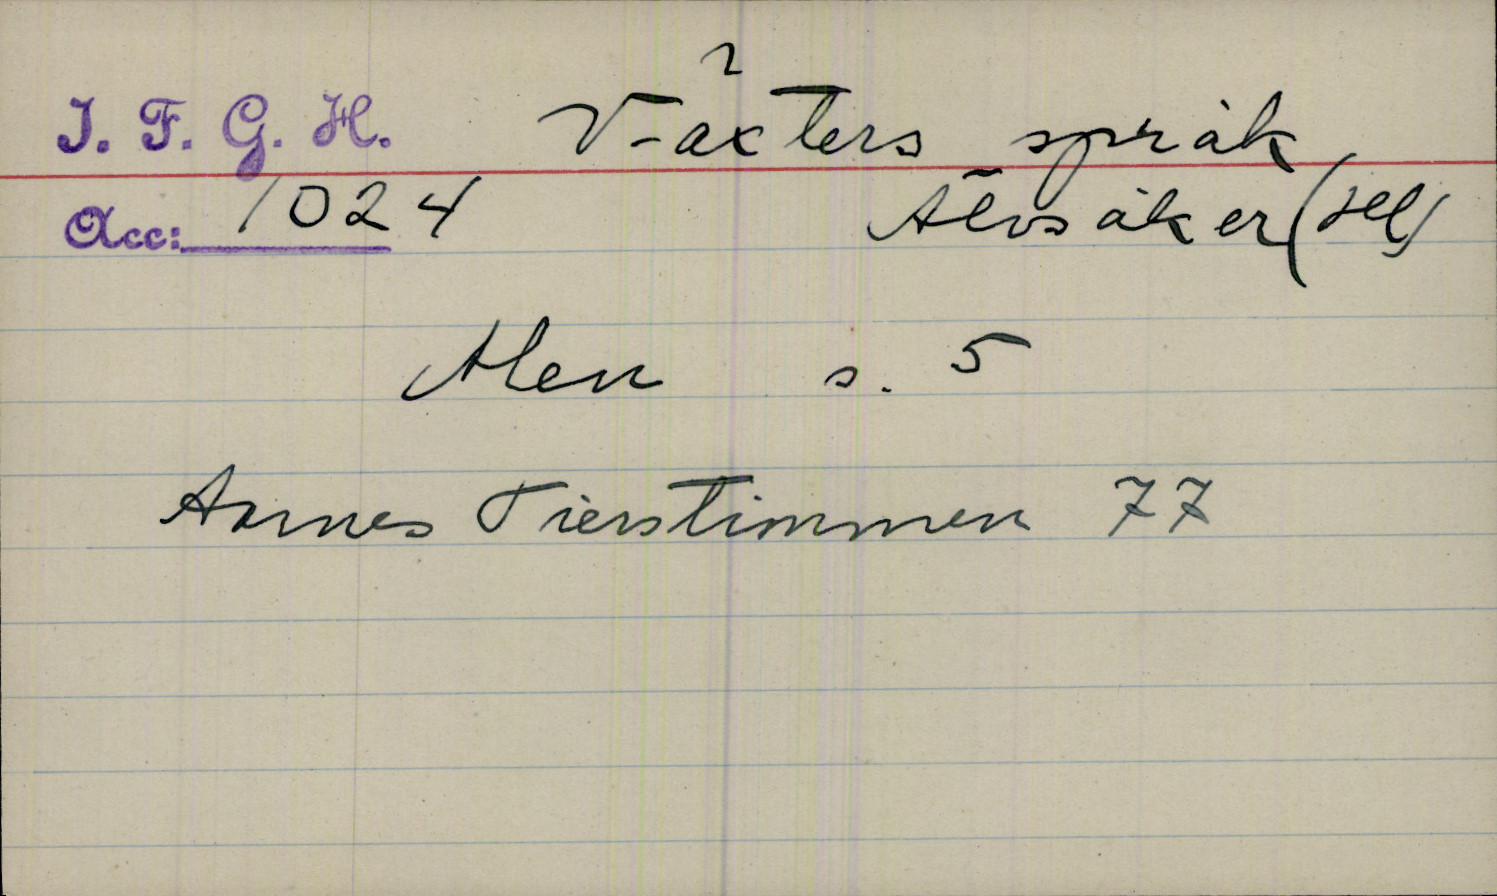 2
I. F. G. H. Växters språk
Acc: 1024 Älvsåker (Hl)
Alen s. 5
Aarnes Tierstimmen 77